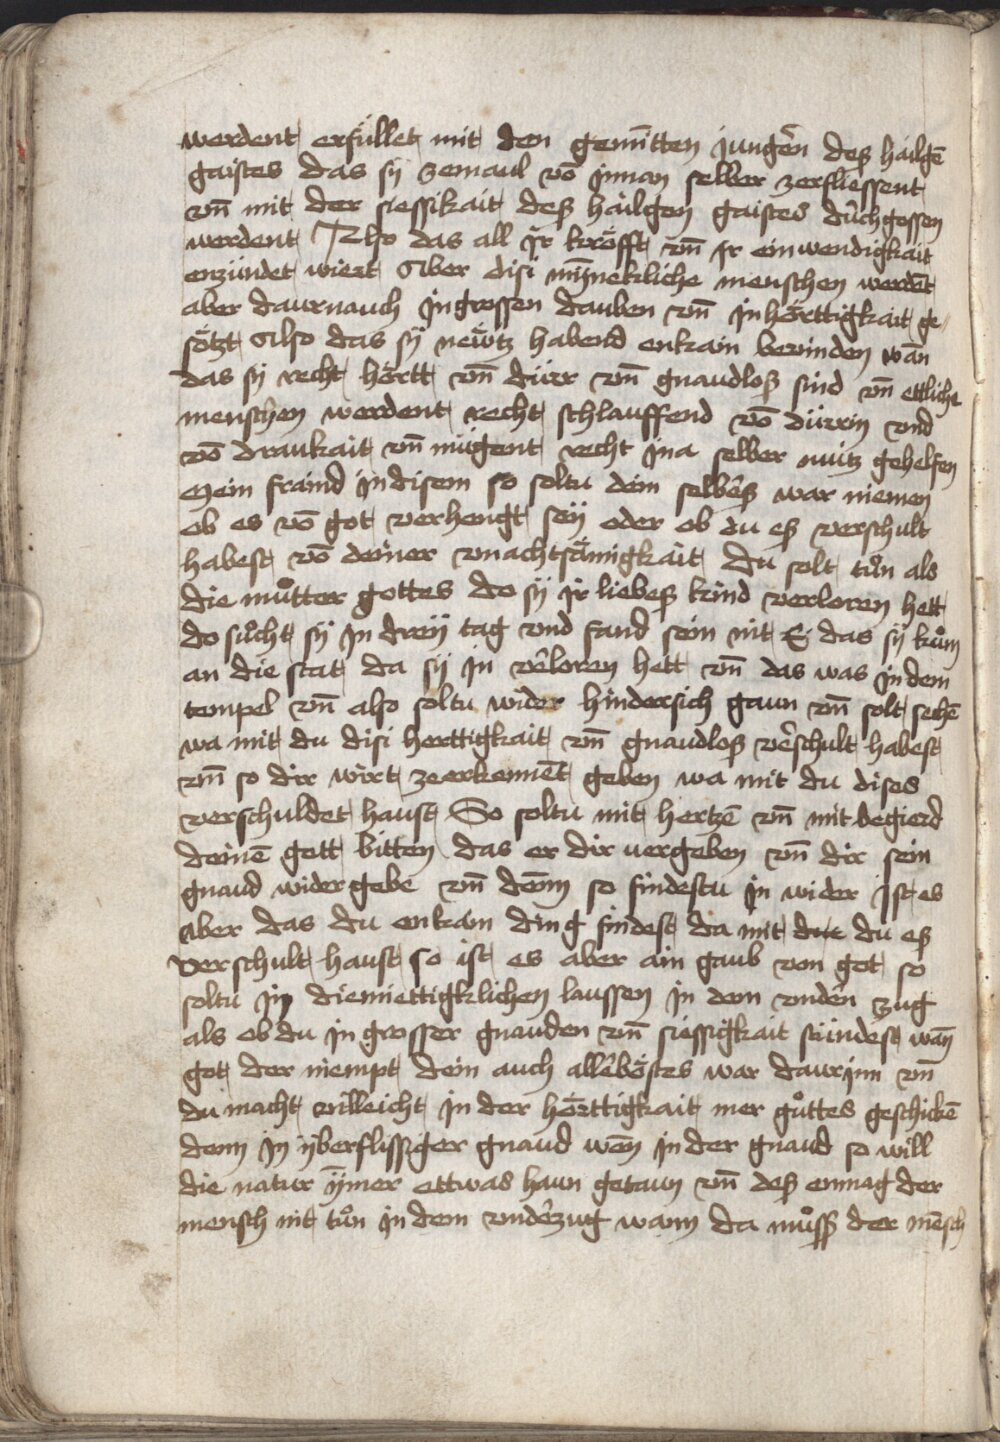 werdent erfüllet mit den gemītten jungeͬn deß hailgē
gaistes das sÿ zemaul vō jnnan selber zerfliessent
vn̄ mit der siessikait deß hailgen gaistes duͬchgossen
werdent Also das all jr kröfft vn̄ jr einwendigkait
enzündet wiert Aber disi mīneckliche menschen werdēt
aber daurnauch jn grossen dauben vn̄ jn hörttigkait ge„
sötzt Also das sÿ neẅtz habend enkain bevinden wān
das sÿ recht hörtt vn̄ dürr vn̄ gnaudloß sind vn̄ ettliche
menschen werdent recht schlauffend vō dürrin vnd
vō draukait vn̄ mügent recht jna selber nutz gehelfen
Mein fraind jn disem so soltu dein selbeͬß war niemen
ob es vō got verhengt seÿ oder ob du eß verschult
habest vō deiner vnachtsämigkait Du solt tůn als
die můtter gottes do sÿ jr liebeß kind verloren hett
do sůcht sÿ jn dreÿ tag vnd fand sein nit E das sÿ kům
an die stat da sÿ jn veͬloren hett vn̄ das was jn dem
tempel vn̄ also soltu wider hindersich gaun vn̄ solt sechē
wa mit du disi herttigkait vn̄ gnaudloß veͬschult habest
vn̄ so dir wirt zeerkennēt geben wa mit du dises
verschuldet haust So soltu mit hertzē vn̄ mit begierd
deinē gott bitten das er dir uergeben vn̄ dir sein
gnaud wider gebe vn̄ dēnn so findestu jn wider Ist es
aber das du enkain ding findest da mit due du eß
verschult haust so ist es aber ain gaub von got so
soltu jn diemiettigklichen laussen jn dem vndeͬn zug
als ob du jn grosser gnauden vn̄ siessigkait stündest wān
got der niempt dein auch alleͬböstes war daurjnn vn̄
du macht villeicht jn der hörttigkait mer gůttes geschickē
denn jn ÿberflissiger gnaud wēn jn der gnaud so will
die natur ÿmer ettwas haun getaun vn̄ deß enmag der
mensch nit tůn jn dem vndeͬzug wann da můß der mēsch